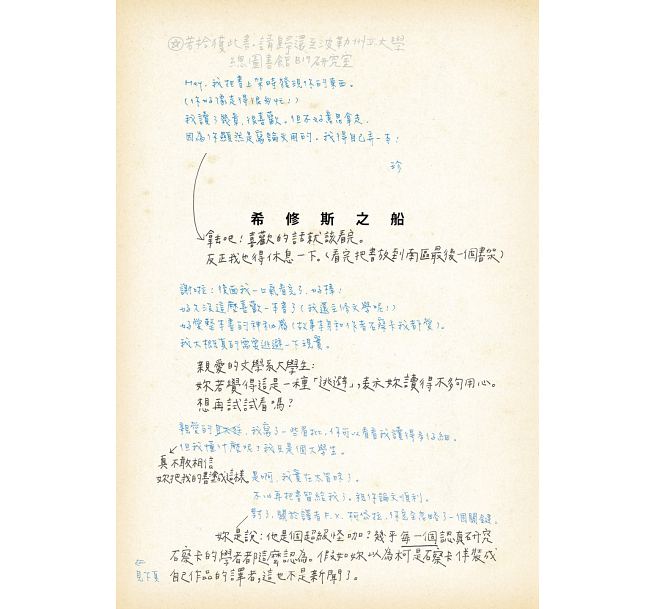 若拾獲此書，請歸還至波勒州立大學
總圖書館B19研究室
Hey, 我把書上架時發現你的東西。
(你好像走得很匆忙！)
我讀了幾章, 很喜歡。但不好意思拿走,
因為你顯然是寫論文用的。我得自己弄一本！
珍
希修斯之船
拿去吧！喜歡的話就該看完。
反正我也得休息一下。(看完把書放到南區最後一個書架)
謝啦！後面我一口氣看完了, 好棒！
好久沒這麼喜歡一本書了(我還主修文學呢！)
我大概真的需要逃避一下現實。
親愛的文學系大學生:
妳若覺得這是一種「逃避」,表示妳讀得不夠用心。
想再試試看嗎？
親愛的 我寫了一些眉批, 你可以看看我讀得多仔細。
但我懂什麼呢？我只是個大學生。
真不敢相信
妳把我的書塗成這樣
是啊, 我實在太冒昧了。
不必再把書留給我了。祝你論文順利。
對了, 關於譯者F.X.柯岱拉, 你完全忽略了一個關鍵。
妳是說:他是個超級怪咖？幾乎每一個認真研究
石察卡的學者都這麼認為。假如妳以為柯是石察卡偽裝成
自己作品的譯者,這也不是新聞了。
見下頁